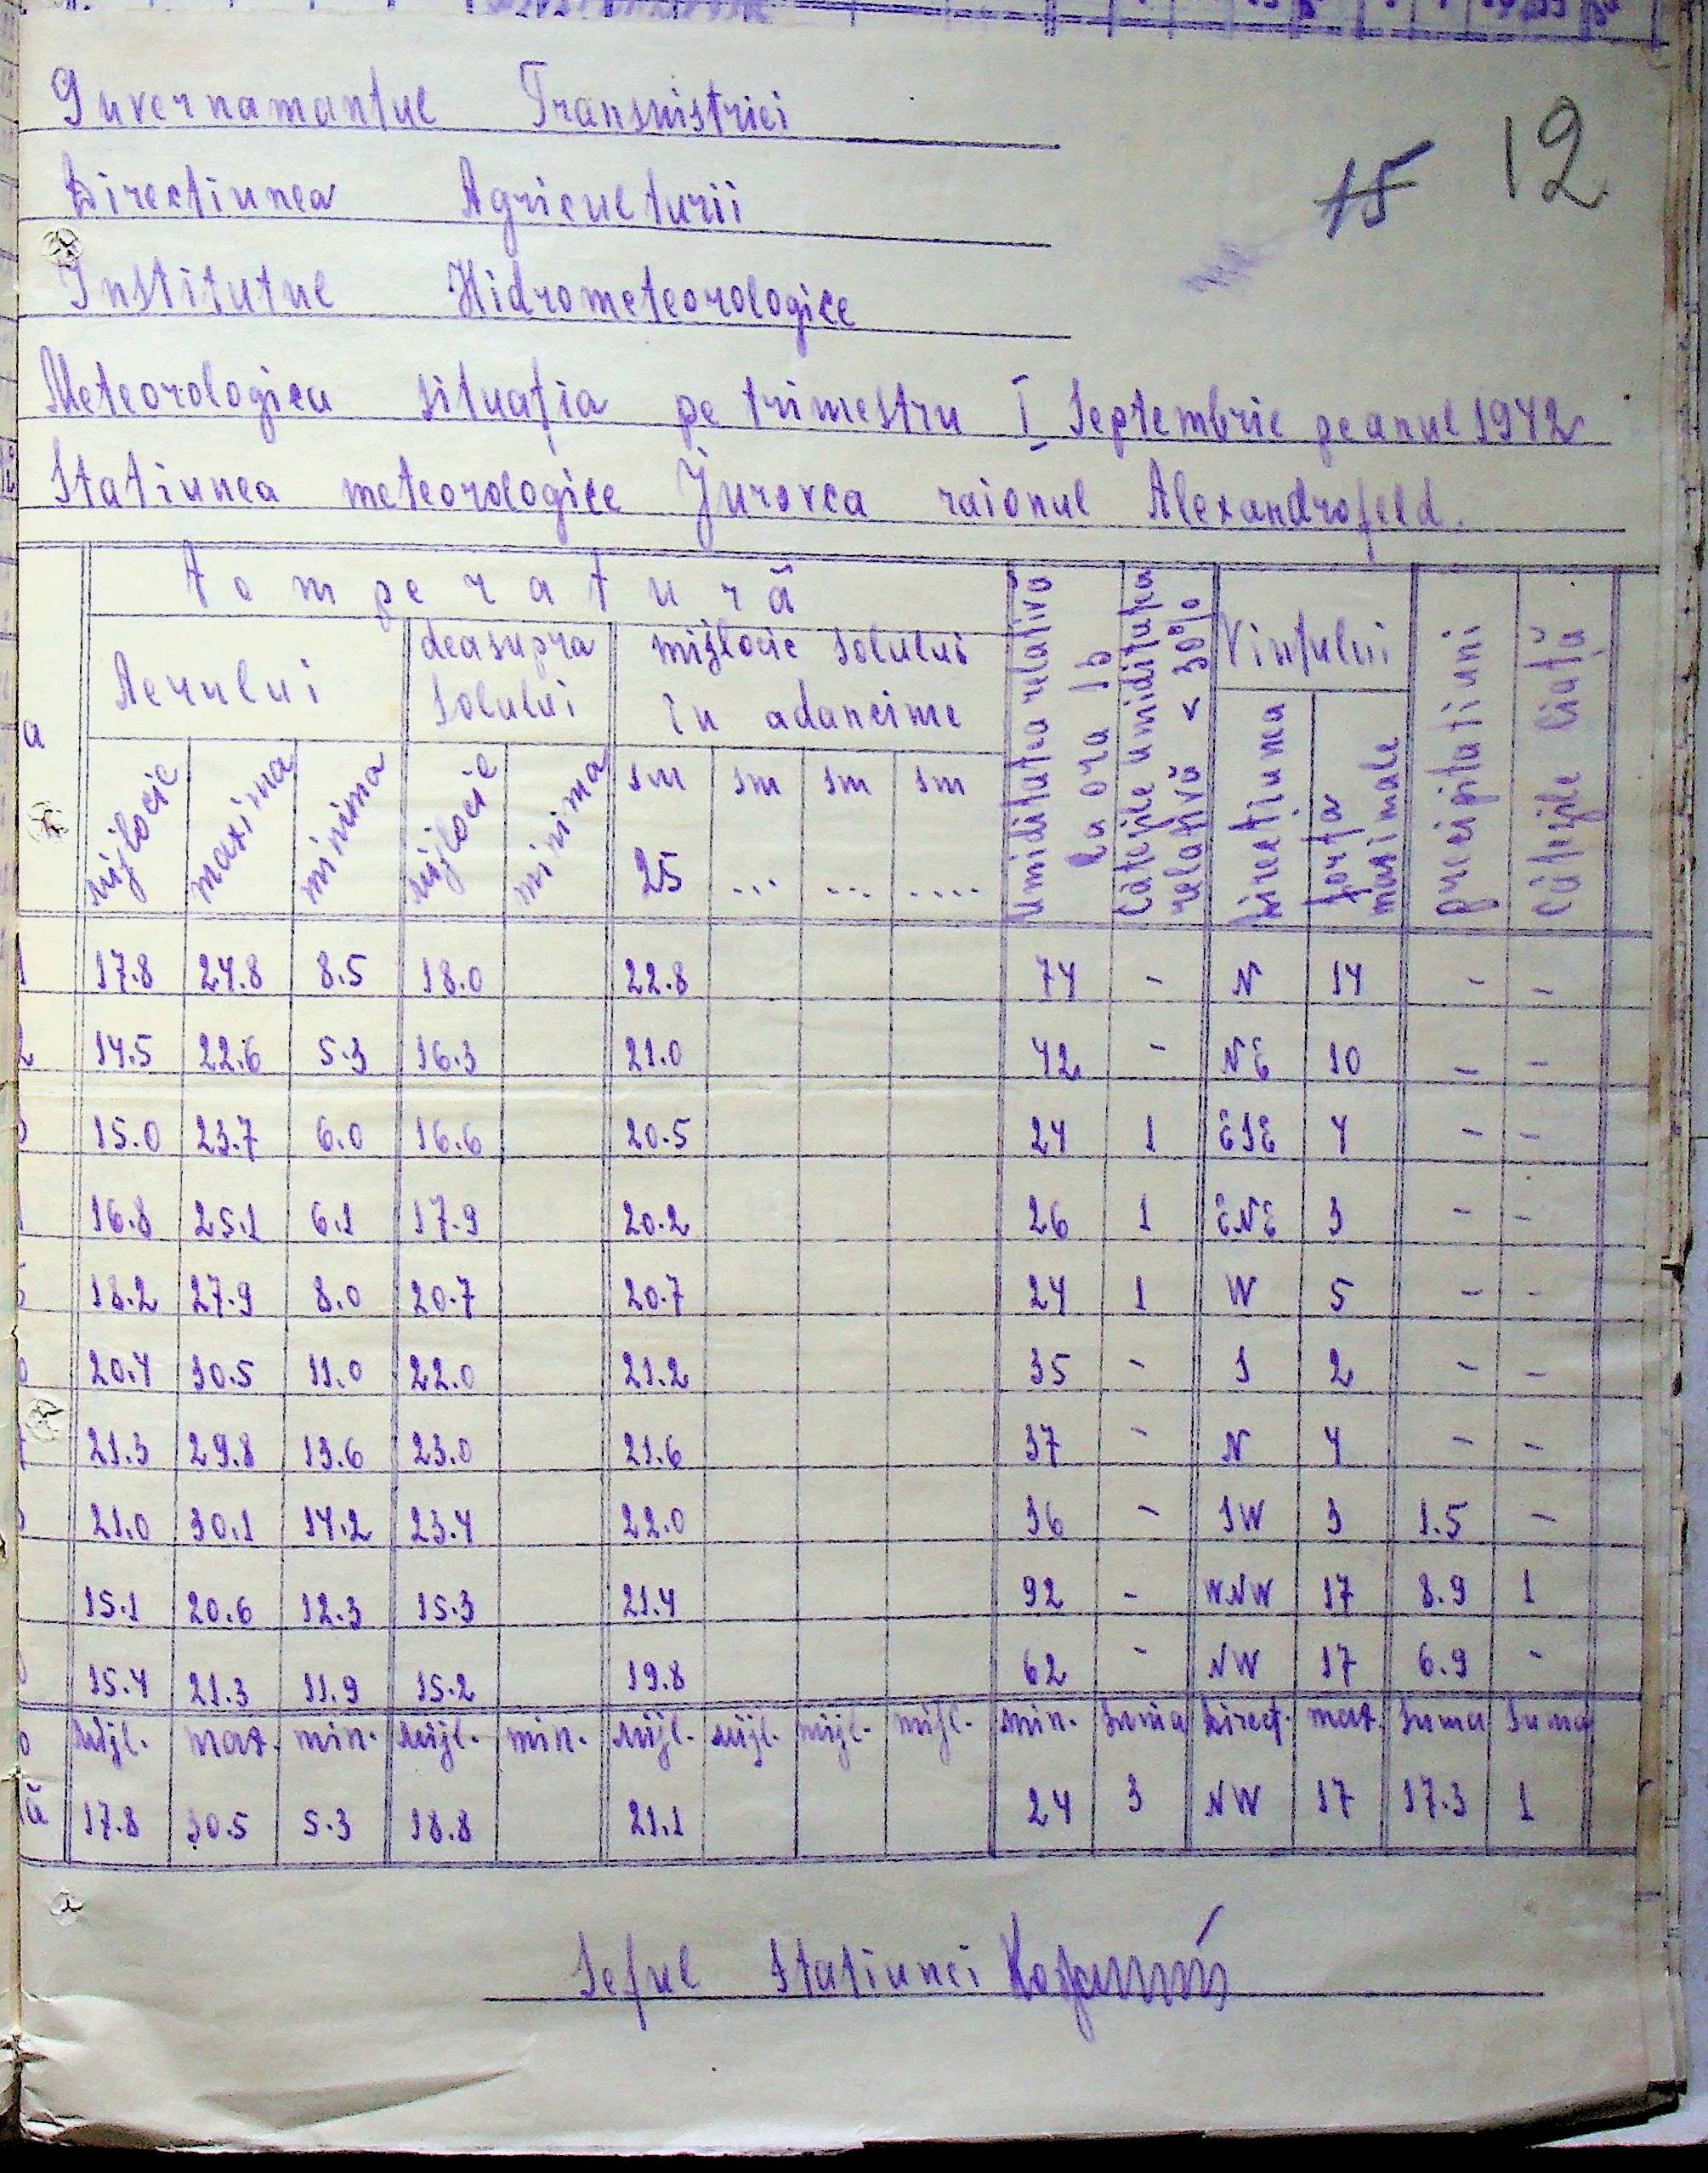 15 12
Guvernamantul Transnistriei
Directiunea Agriculturii
Institutul Hidrometeorologice
Meteorologica situaţia pe trimestru I Septembrie pe anul 1942
Statiunea meteorologice Jurovca raionul Alexandrofeld.
a
temperatură
Aerului deasupra solului mijlocie solului în adancime
mijlocie maxima minima mijlocie minima sm 25 sm ... sm ... sm ....
Umiditatea relativa la ora 13
Cateşile umiditatea relativă < 30%
Vintului
Direcţiunea forţa maximale
precipitatiuni
1 17.8 24.8 8.5 18.0 22.8 74 - N 14 - -
2 14.5 22.6 5.3 16.3 21.0 42 - NE 10 - -
15.0 23.7 6.0 16.6 20.5 24 1 ESE 4 - -
16.8 25.1 6.1 17.9 20.2 26 1 ENE 3 - -
18.2 27.9 8.0 20.7 20.7 24 1 W 5 - -
20.4 30.5 11.0 22.0 21.2 35 - S 2 - -
21.3 29.8 13.6 23.0 21.6 37 - N 4 - -
21.0 30.1 14.2 23.4 22.0 36 - SW 3 1.5 -
15.1 20.6 12.3 15.3 21.4 92 - WNW 17 8.9 1
15.4 21.3 11.9 15.2 19.8 62 - NW 17 6.9 -
mijl. max. min. mijl. min. mijl. mijl. mijl. mijl. min. suma direcţ. max. suma suma
17.8 30.5 5.3 18.8 21.1 24 3 NW 17 17.3 1
Seful Statiunei